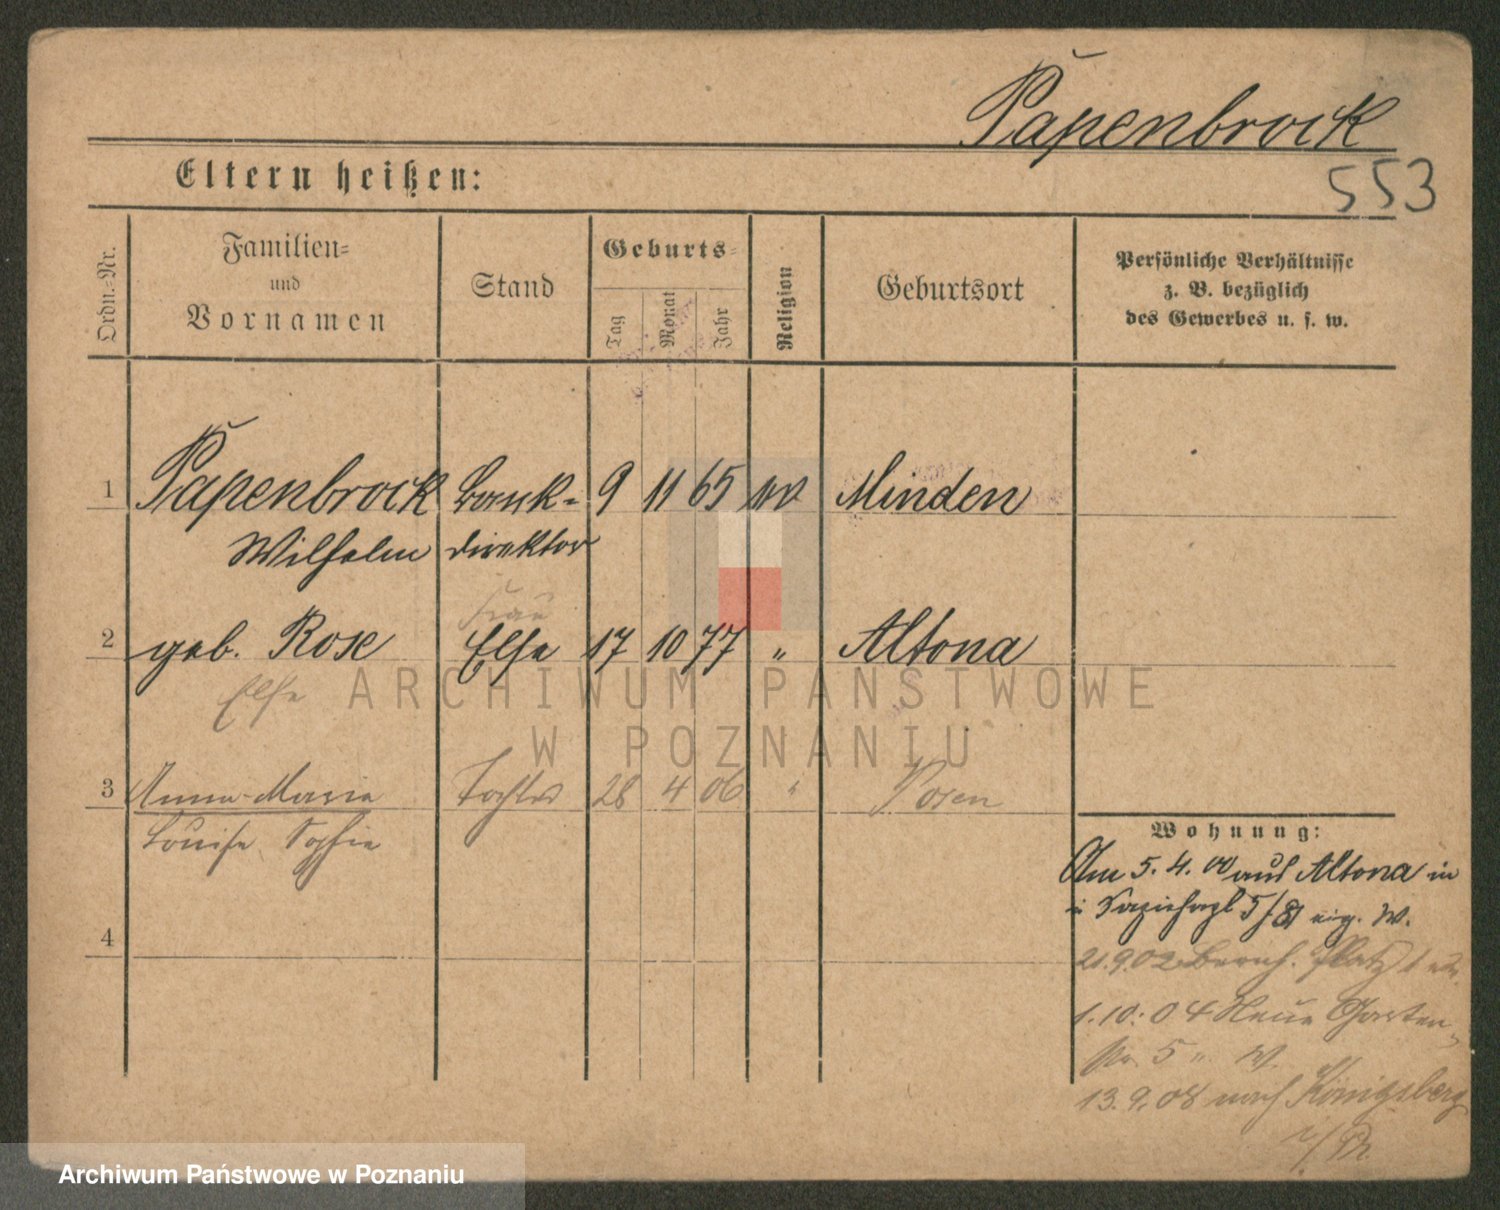 Papenbrock
553
Eltern heißen:
Ordn.-Nr.
Familien-
und
Vornamen
Stand
Geburts-
Tag
Monat
Jahr
Religion
Geburtsort
Persönliche Verhältnisse
z. B. bezüglich
des Gewerbes u. s. w.
1 Papenbrock Bank- 9 11 65 Minden
Wilhelm direktor
Frau
2 geb. Rose Else 17 10 77 " Altona
Else
3 Anna-Maria Tochter 28 4 06 " Posen
Louise Sophie
4
Wohnung:
Am 5.4.00 aus Altona in
5/8 eig. W.
21.9.02 Platz 1
1.10.04 Neue Garten-
str. 5 " W.
13.9.08 nach Königsberg
i/Pr
ARCHIWUM PAŃSTWOWE
W POZNANIU
Archiwum Państwowe w Poznaniu